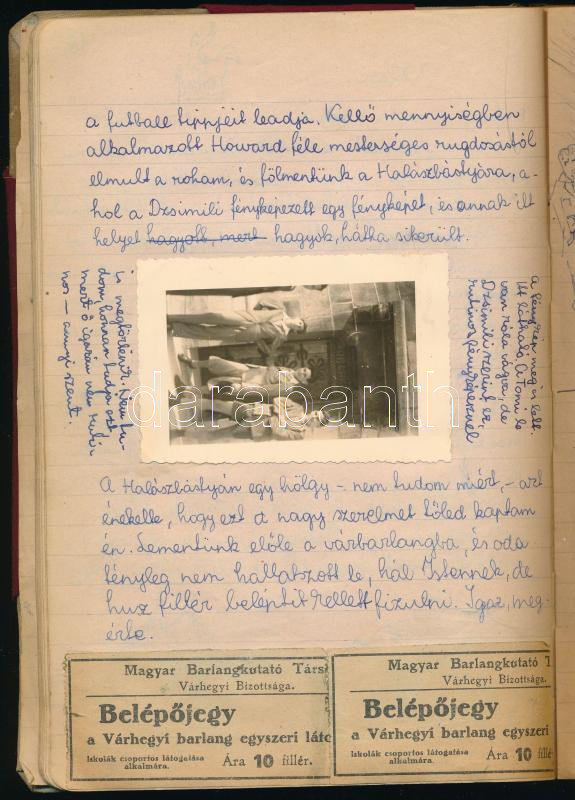 a futball tippjeit leadja. Kellő mennyiségben
alkalmazott Howard féle mesterséges rugdosástól
elmult a roham, és fölmentünk a Halászbástyára, a-
hol a Dzsimili fényképezett egy fényképet, és annak itt
helyet hagyott, mert hagyok, hátha sikerült.
A fénykép meg is lett.
Itt látható
van róla vágva, de
Dzsimili szerint ez
rutinos fényképésznél
is megtörténik. Nem tu-
dom, honnan tudja ezt,
mert ő igazán nem rutin-
nos — annyi szent.
darabanth
A Halászbástyán egy hölgy – nem tudom miért, – azt
énekelte, hogy ezt a nagy szerelmet tőled kaptam
én. Lementünk előle a várbarlangba, és oda
tényleg nem hallatszott le, hál Istennek, de
husz fillér beléptit kellett fizetni. Igaz, meg-
érte.
Magyar Barlangkutató Társ
Várhegyi Bizottsága.
Belépőjegy
a Várhegyi barlang egyszeri láto
Iskolák csoportos látogatása
alkalmára.
Ára 10 fillér.
Magyar Barlangkutató T
Várhegyi Bizottsága.
Belépőjegy
a Várhegyi barlang egyszeri
Iskolák csoportos látogatása
alkalmára.
Ára 10 fillé